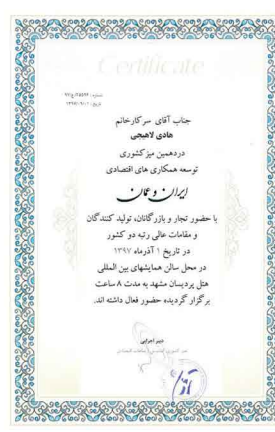 Certificate
شماره : ۹۷/ع/۲۵۵۴۴
تاریخ : ۱۳۹۷/۰۹/۰۱
جناب آقای سرکارخانم
هادی لاهیجی
در دهمین میز کشوری
توسعه همکاری های اقتصادی
ایران و عمان
با حضور تجار و بازرگانان، تولید کنندگان
و مقامات عالی رتبه دو کشور
در تاریخ ۱ آذرماه ۱۳۹۷
در محل سالن همایشهای بین المللی
هتل پردیسان مشهد به مدت ۸ ساعت
برگزار گردیده حضور فعال داشته اند.
دبیر اجرایی